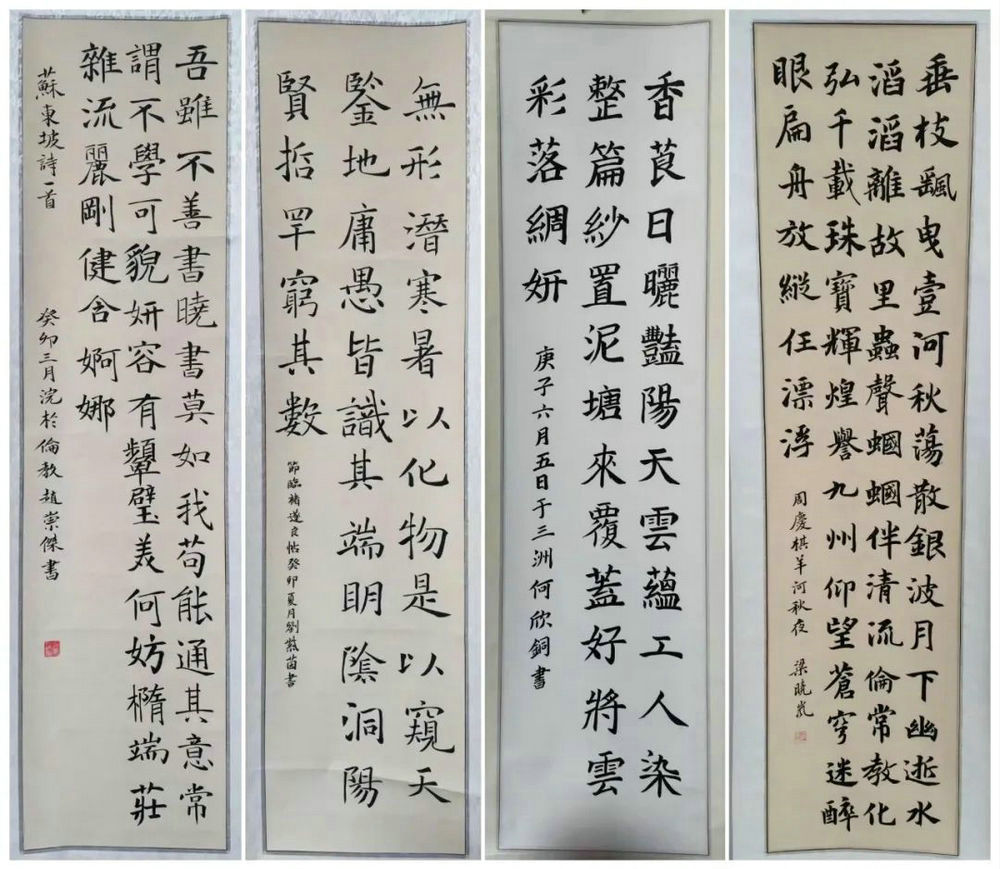 吾雖不善書曉書莫如我苟能通其意常
謂不學可貌妍容有顰璧美何妨橢端莊
雜流麗剛健含婀娜
蘇東坡詩一首
癸卯三月浣於倫教趙崇傑書
無形潛寒暑以化物是以窺天
鑒地庸愚皆識其端眀陰洞陽
賢哲罕窮其數
節臨褚遂良帖癸卯夏月劉茵書
香莨日曬豔陽天雲蘊工人染
整篇紗置泥塘來覆蓋好將雲
彩落綢妍
庚子六月五日于三洲何欣銅書
垂枝飄曳壹河秋蕩散銀波月下幽逝水
滔滔離故里蟲聲蟈蟈伴清流倫常教化
弘千載珠寶輝煌譽九州仰望蒼穹迷醉
眼扁舟放縱任漂浮
周慶棋羊河秋夜
梁曉嵐